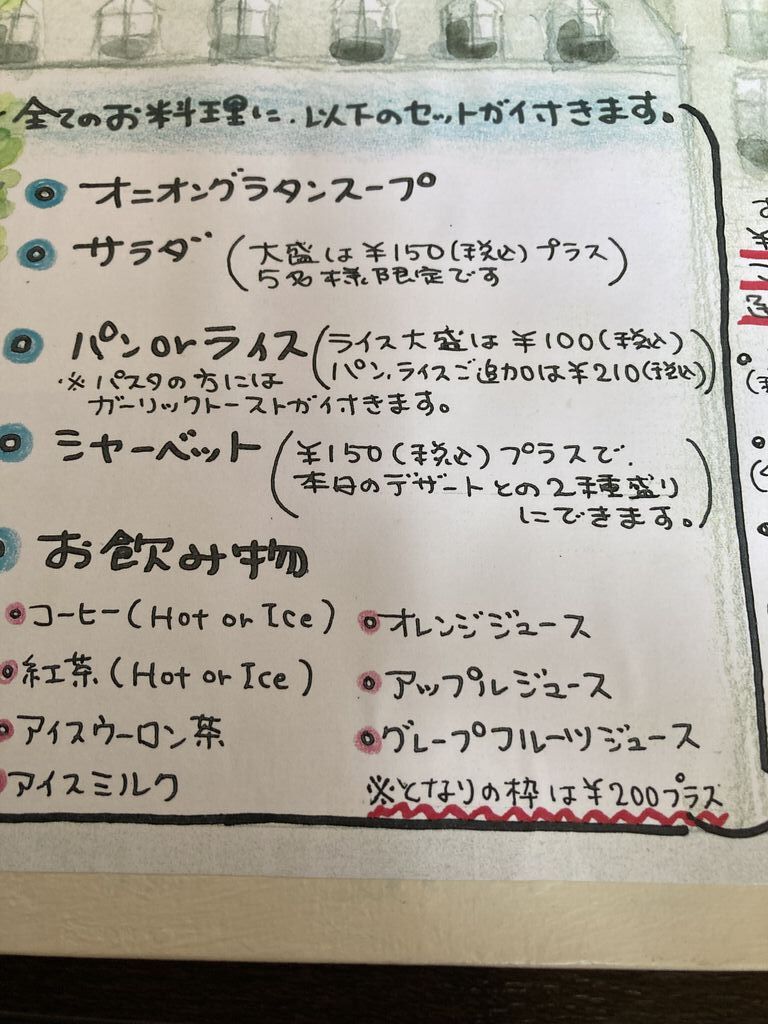 全てのお料理に、以下のセットが付きます。
オニオングラタンスープ
サラダ (大盛は¥150(税込)プラス
5名様限定です)
パンorライス (ライス大盛は ¥100(税込)
パン、ライスご追加は¥210(税込))
※パスタの方には
ガーリックトーストが付きます。
シャーベット (¥150(税込)プラスで、
本日のデザートとの2種盛り
にできます。)
お飲み物
コーヒー(Hot or Ice)
紅茶(Hot or Ice)
アイスウーロン茶
アイスミルク
オレンジジュース
アップルジュース
グレープフルーツジュース
※となりの枠は¥200プラス